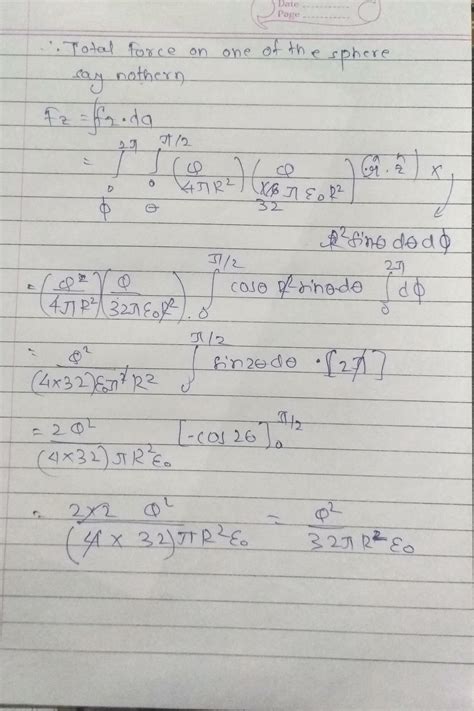 Date
Page
∴ Total force on one of the sphere
say nothern
Fz = ∫fz·da
= ∫₀^2π ∫₀^π/2 (Q/4πR²) (Q/32πε₀R²) (r̂·ẑ) ×
φ θ
R²sinθ dθ dφ
= (Q/4πR²)(Q/32πε₀R²) · ∫₀^π/2 cosθ R²sinθdθ ∫₀^2π dφ
= Q²/(4×32)ε₀π²R² ∫₀^π/2 sin2θdθ · [2π]
= 2Q²/(4×32)πR²ε₀ [-cos2θ]₀^π/2
= 2×2 Q²/(4×32)πR²ε₀ = Q²/32πR²ε₀